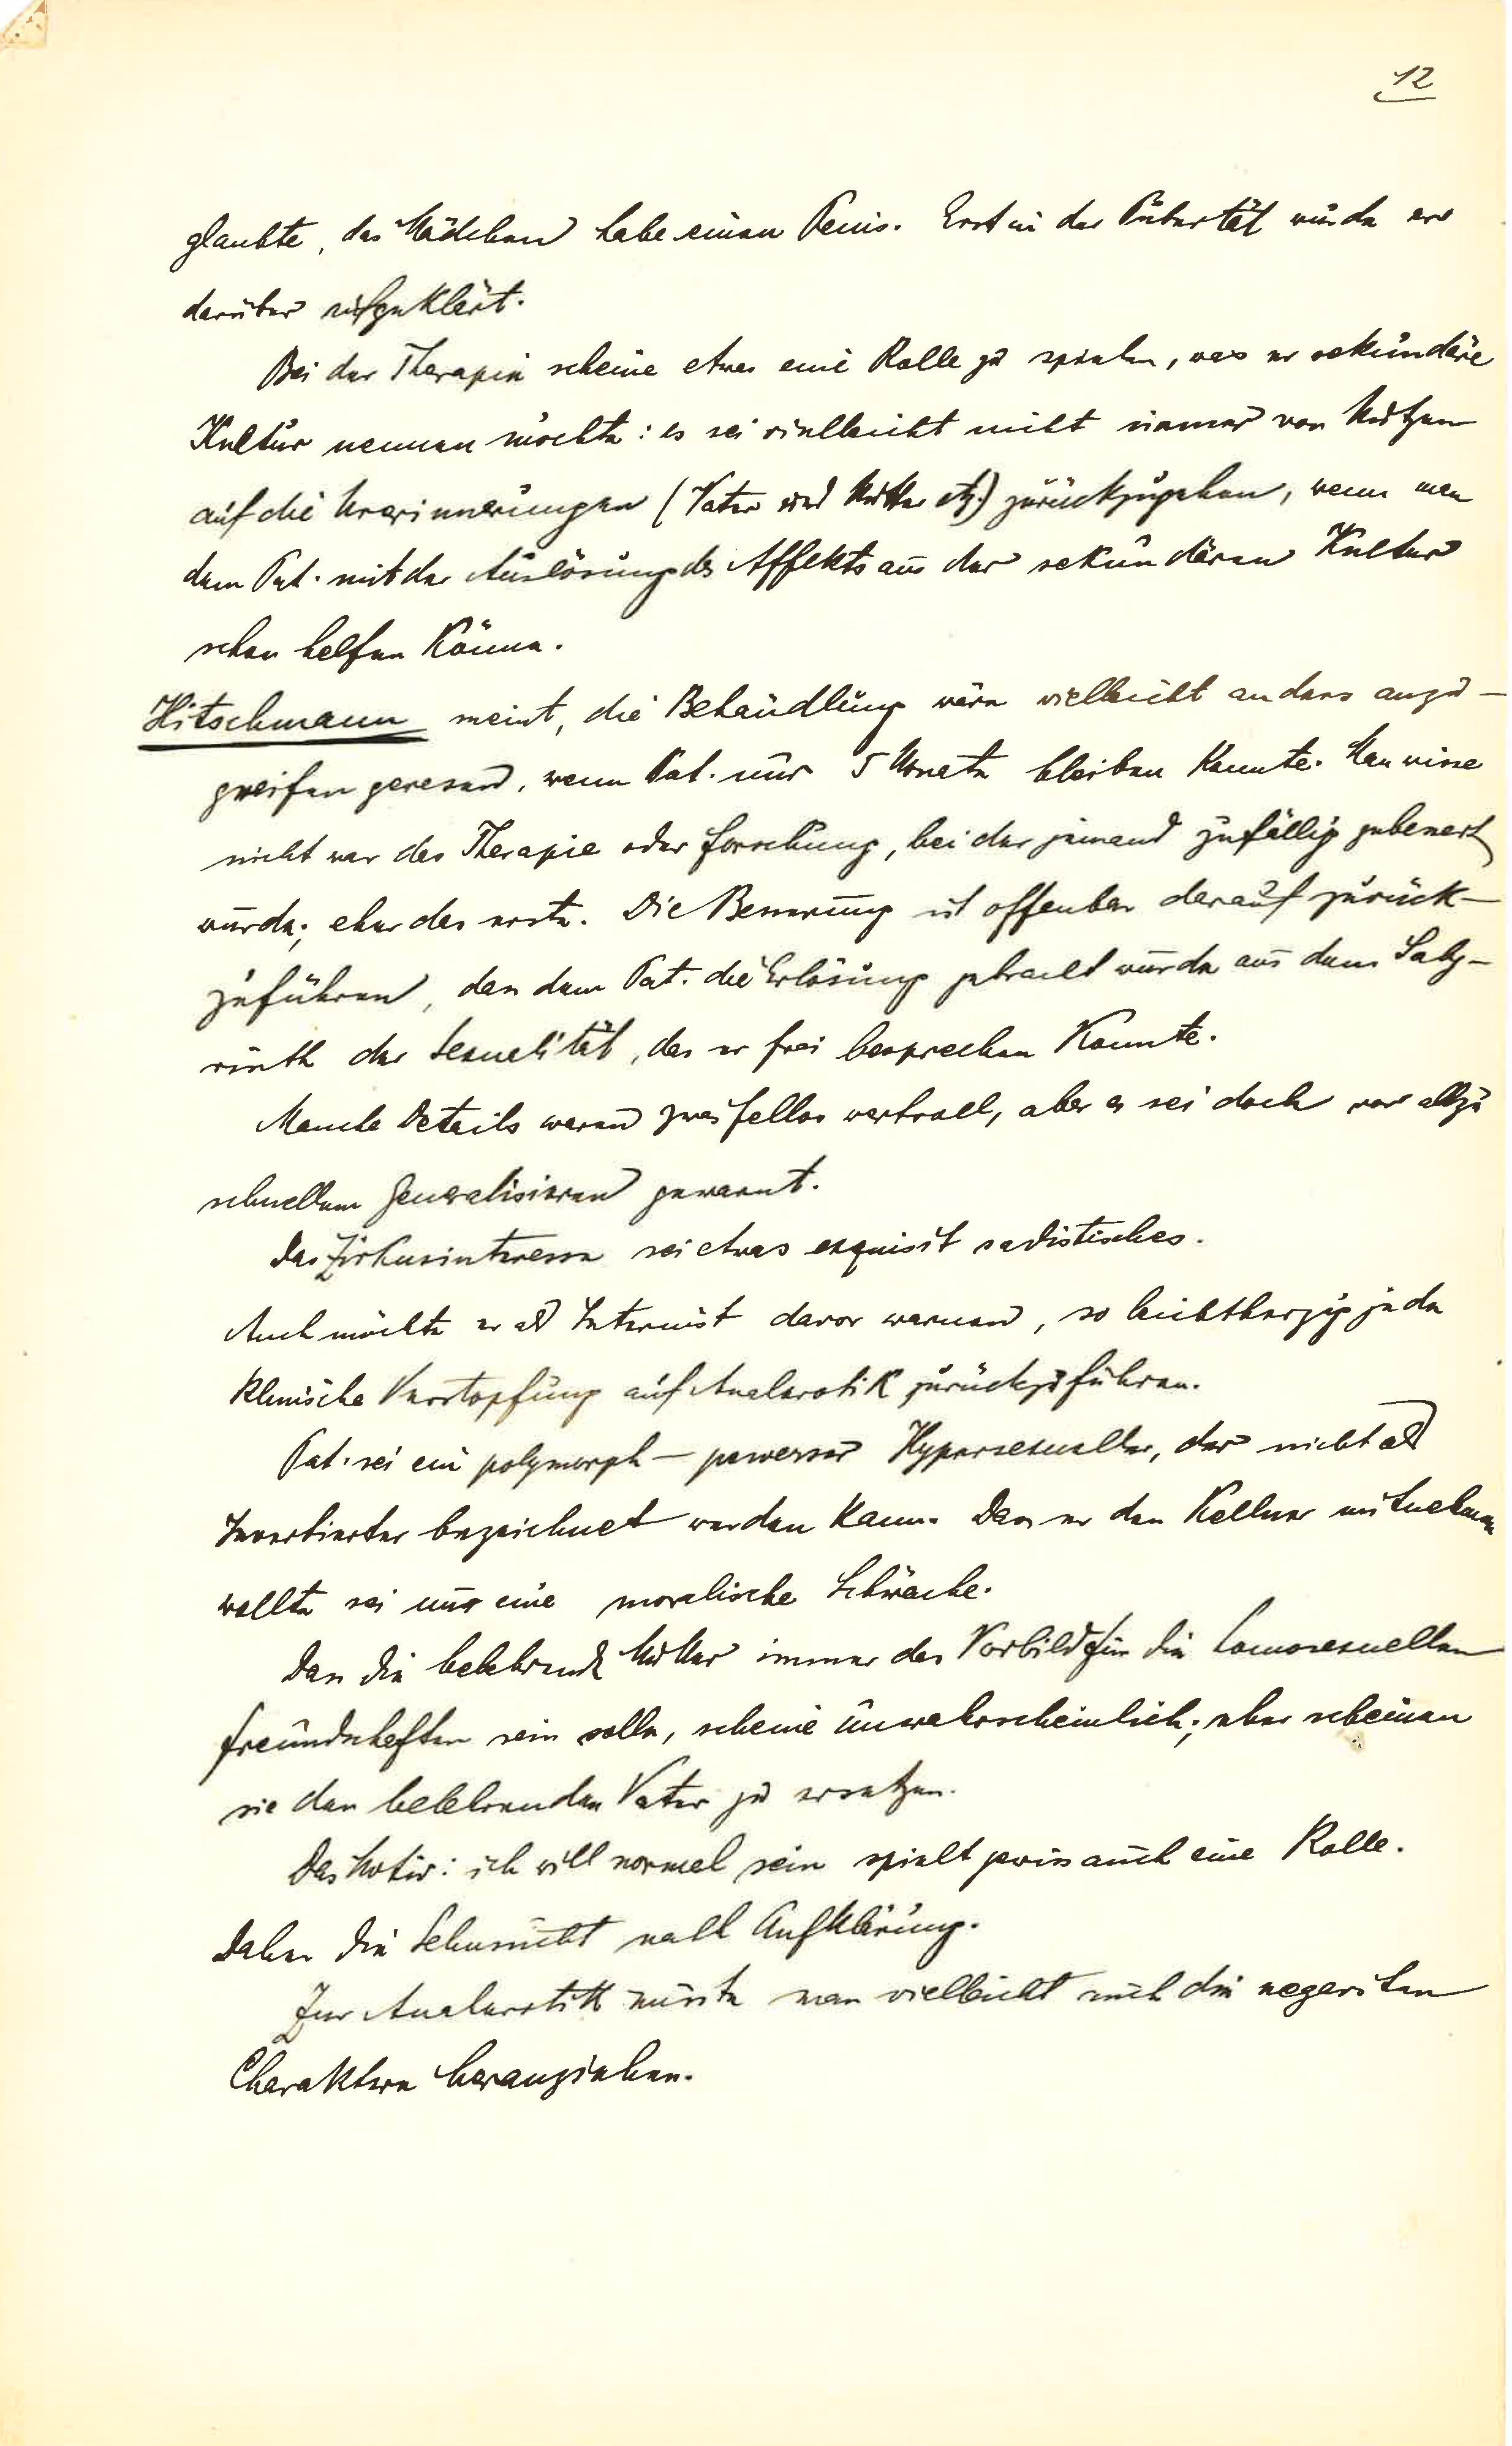 12
glaubte, das Mädchen habe einen Penis. Erst in der Pubertät wurde er
darüber aufgeklärt.
Bei der Therapie scheine etwas eine Rolle zu spielen, was er sekundäre
Kultur nennen möchte: es sei vielleicht nicht immer von Nutzen
auf die Urerinnerungen (Vater und Mutter etz.) zurückzugehen, wenn man
dem Pat. mit der Auslösung des Affekts aus der sekundären Kultur
schon helfen könne.
Hitschmann meint, die Behandlung wäre vielleicht anders anzu-
greifen gewesen, wenn Pat. nur 5 Monate bleiben konnte. Man wisse
nicht war das Therapie oder Forschung, bei der jemand zufällig gebessert
wurde; eher das erste. Die Besserung ist offenbar darauf zurück-
zuführen, dass dem Pat. die Erlösung gebracht wurde aus dem Laby-
rinth der Sexualität, das er frei besprechen konnte.
Manche Details waren zweifellos wertvoll, aber es sei doch vor allzu
schnellem Generalisieren gewarnt.
Das Zirkusinteresse sei etwas exquisit sadistisches.
Auch möchte er als Internist davor warnen, so leichtherzig jede
klinische Verstopfung auf Analerotik zurückzuführen.
Pat. sei ein polymorph-perverser Hypersexueller, der nicht als
Invertierter bezeichnet werden kann. Dass er den Kellner mitnehmen
wollte sei nur eine moralische Schwäche.
Dass die belehrende Mutter immer das Vorbild für die homosexuellen
Freundschaften sein solle, scheine unwahrscheinlich; eher scheinen
sie den belehrenden Vater zu ersetzen.
Das Motiv: ich will normal sein spielt gewiss auch eine Rolle.
Daher die Sehnsucht nach Aufklärung.
Zur Analerotik müsste man vielleicht auch die negativen
Charaktere heranziehen.